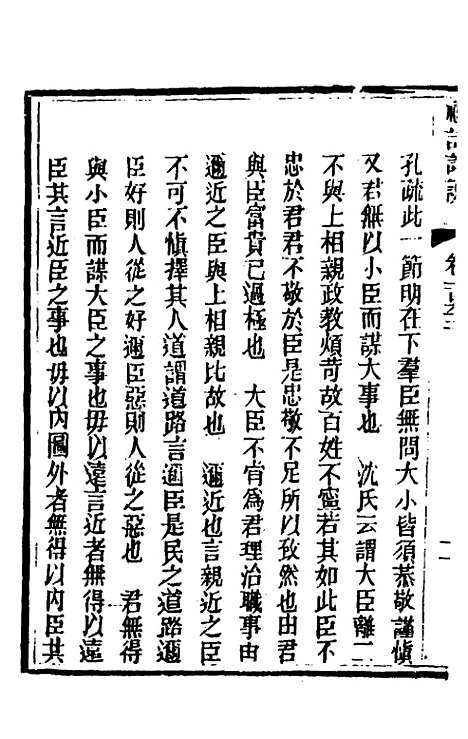 孔疏此一節明在下羣臣無問大小皆須恭敬謹愼
又君無以小臣而謀大事也　沈氏云謂大臣離二
不與上相親政教煩苛故百姓不寧若其如此臣不
忠於君君不敬於臣是忠敬不足所以致然也由君
與臣富貴已過極也　大臣不肯爲君理治職事由
邇近之臣與上相親比故也　邇近也言親近之臣
不可不愼擇其人道謂道路言邇臣是民之道路邇
臣好則人從之好邇臣惡則人從之惡也　君無得
與小臣而謀大臣之事也毋以遠言近者無得以遠
臣其言近臣之事也毋以內圖外者無得以內臣其